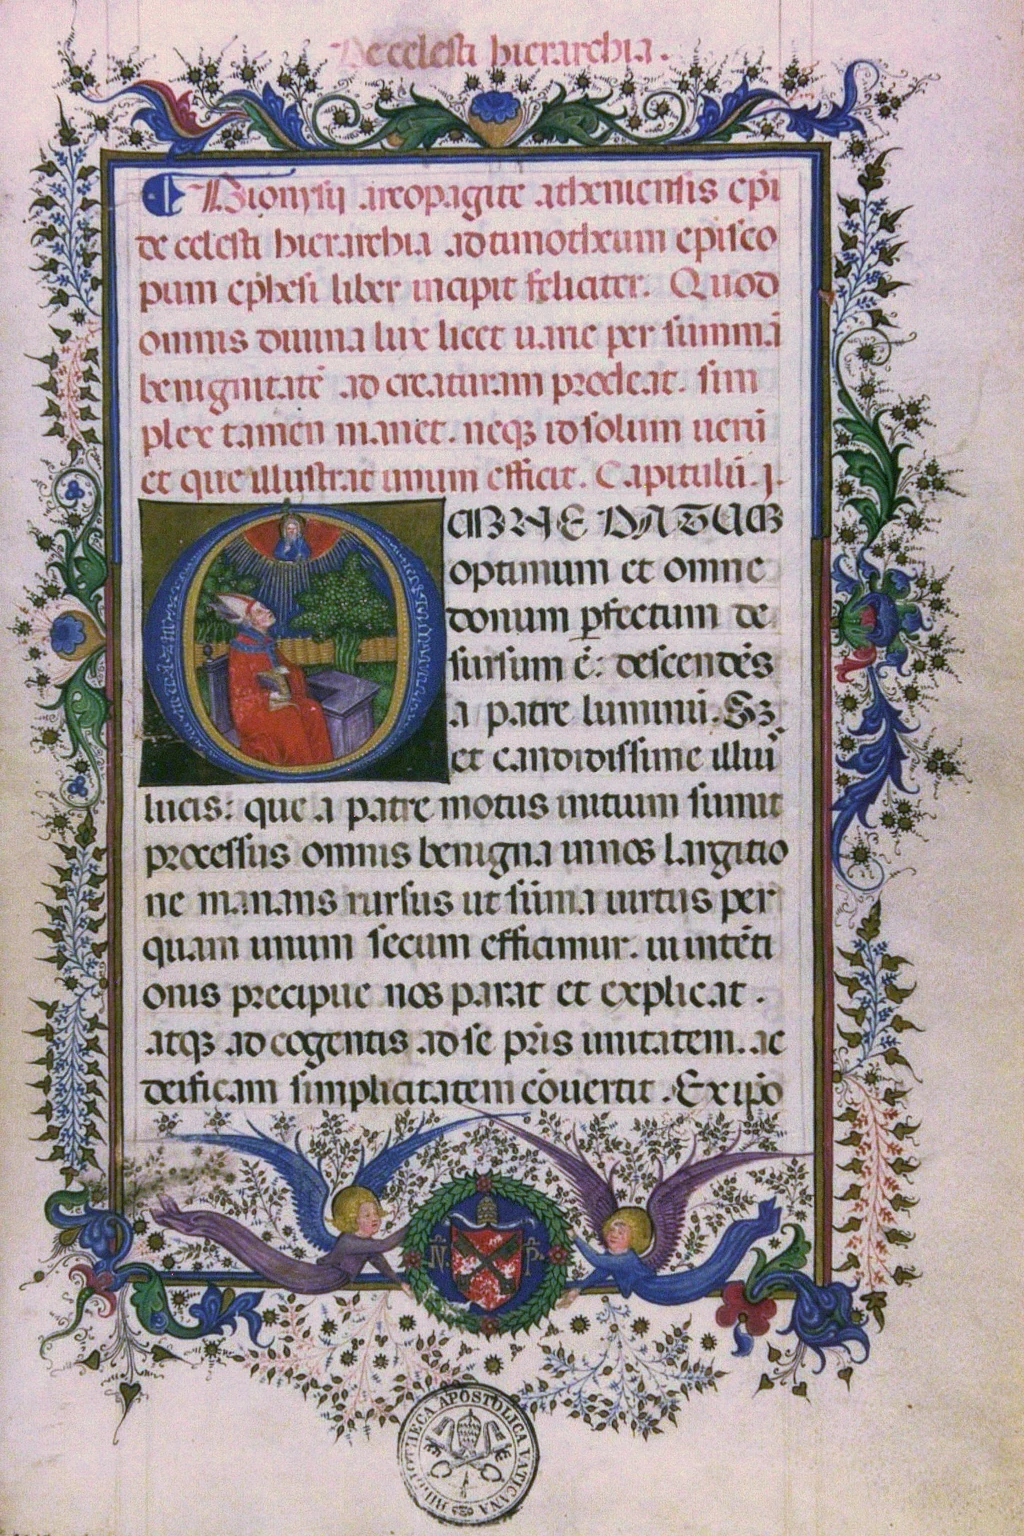 De celesti hierarchia.
Dionysii areopagite atheniensis ep̄i
de celesti hierarchia ad timotheum episco
pum ephesi liber incipit feliciter. Quod
omnis diuina lux licet uarie per summā
benignitatē ad creaturam prodeat. sim
plex tamen manet. neqꝫ id solum uerū
et que illustrat unum efficit. Capitulū. j.
OMNE DATUM
optimum et omne
donum ꝑfectum de
sursum ē: descendēs
a patre luminū. Sꝫ
et candidissime illui
lucis: que a patre motus initium sumit
processus omnis benigna in nos largitio
ne manans rursus ut sūma uirtus per
quam unum secum efficimur. uı intēti
onis precipue nos parat et explicat.
atqꝫ ad cogentis ad se pr̄is unitatem. ac
deificam simplicitatem cōuertit. Ex ip̄o
N P
BIBLIOTHECA APOSTOLICA VATICANA